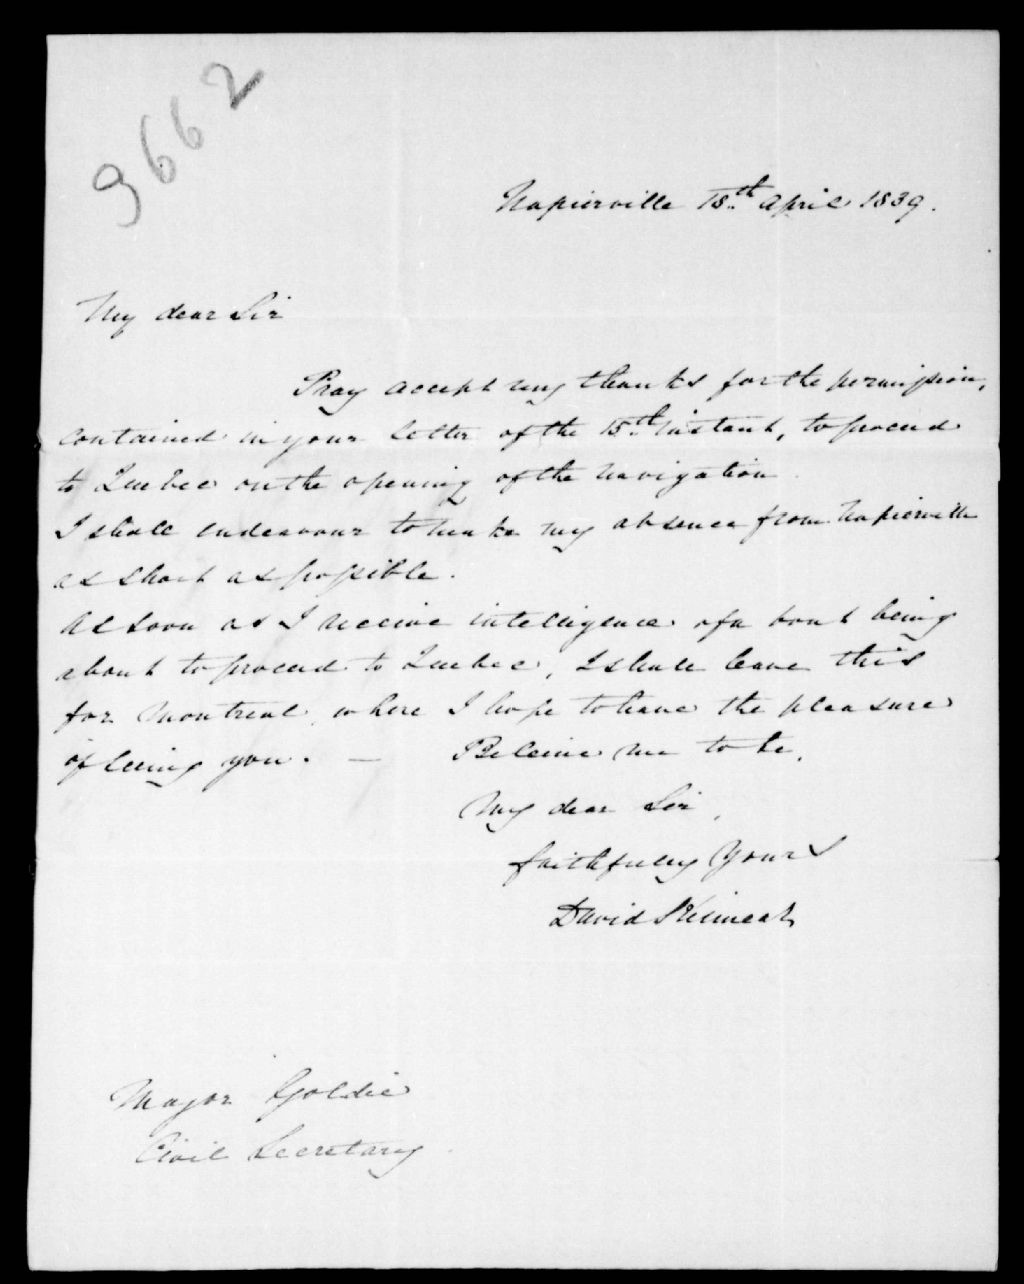 9662
Napierville 18th April 1839.
My dear Sir
Pray accept my thanks for the permission,
contained in your letter of the 15th instant, to proceed
to Quebec on the opening of the navigation.
I shall endeavour to make my absence from Napierville
as short as possible.
As soon as I receive intelligence of a boat being
about to proceed to Quebec, I shall leave this
for Montreal where I hope to have the pleasure
of seeing you. —
Believe me to be,
My dear Sir,
faithfully Yours
David
Major Goldie
Civil Secretary